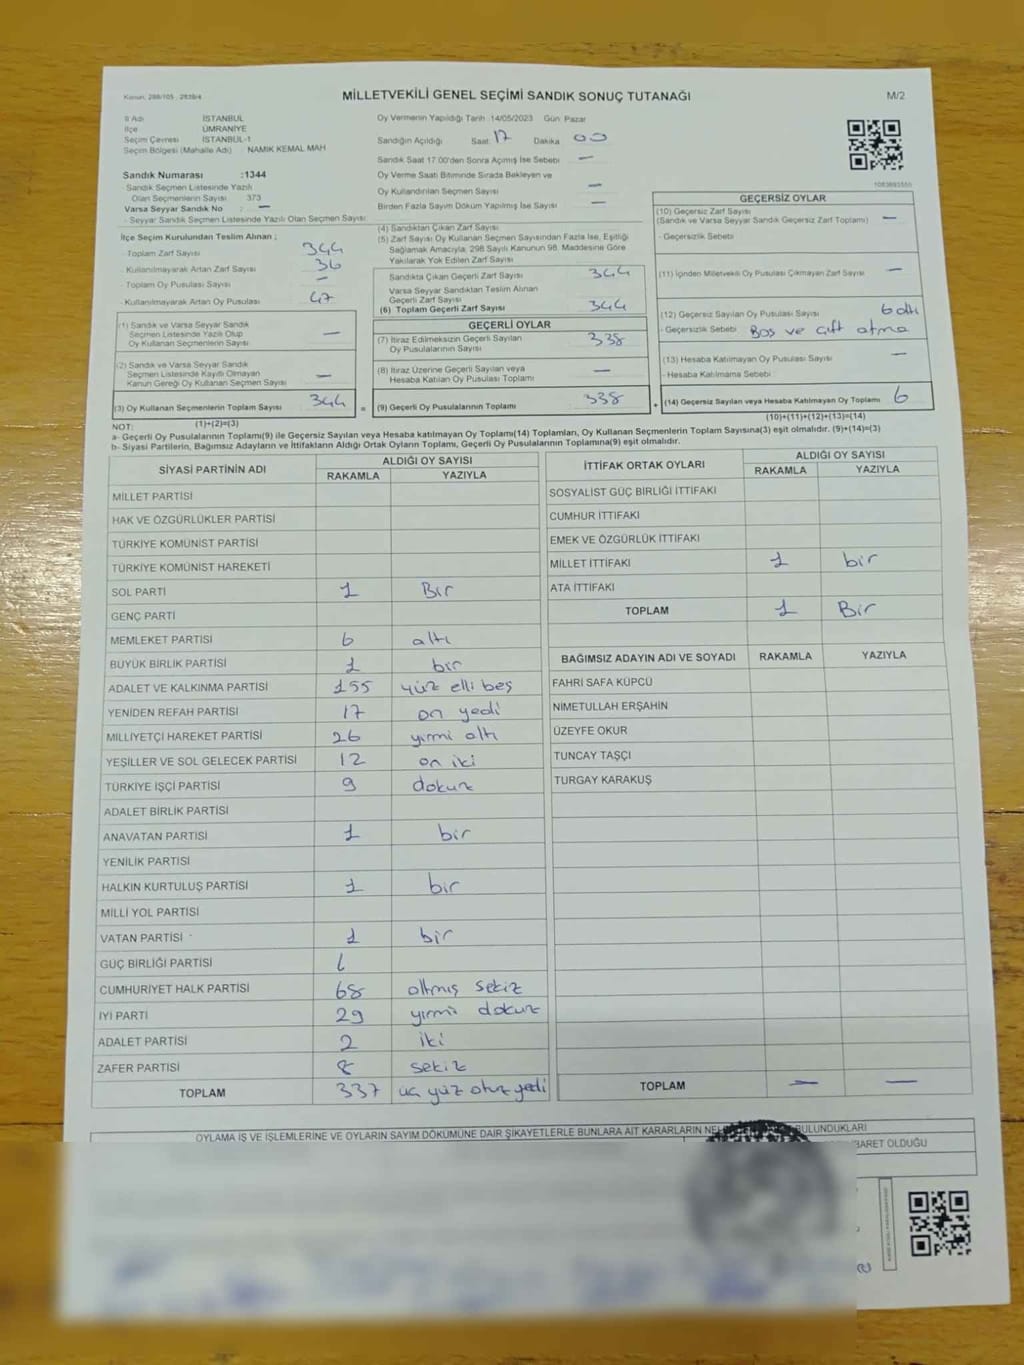 Kanun, 298/105 , 2839/4
MİLLETVEKİLİ GENEL SEÇİMİ SANDIK SONUÇ TUTANAĞI
M/2
İl Adı İSTANBUL
İlçe ÜMRANİYE
Seçim Çevresi İSTANBUL-1
Seçim Bölgesi (Mahalle Adı) : NAMIK KEMAL MAH
Oy Vermenin Yapıldığı Tarih :14/05/2023 Gün: Pazar
Sandığın Açıldığı Saat: 17 Dakika 00
Sandık Saat 17.00'den Sonra Açmış İse Sebebi —
Oy Verme Saati Bitiminde Sırada Bekleyen ve
Oy Kullandırılan Seçmen Sayısı —
Birden Fazla Sayım Döküm Yapılmış İse Sayısı —
Sandık Numarası :1344
- Sandık Seçmen Listesinde Yazılı
Olan Seçmenlerin Sayısı 373
Varsa Seyyar Sandık No : —
- Seyyar Sandık Seçmen Listesinde Yazılı Olan Seçmen Sayısı
İlçe Seçim Kurulundan Teslim Alınan ;
- Toplam Zarf Sayısı 344
- Kullanılmayarak Artan Zarf Sayısı 36
- Toplam Oy Pusulası Sayısı —
- Kullanılmayarak Artan Oy Pusulası 47
(1) Sandık ve Varsa Seyyar Sandık
Seçmen Listesinde Yazılı Olup
Oy Kullanan Seçmenlerin Sayısı —
(2) Sandık ve Varsa Seyyar Sandık
Seçmen Listesinde Kayıtlı Olmayan
Kanun Gereği Oy Kullanan Seçmen Sayısı —
(3) Oy Kullanan Seçmenlerin Toplam Sayısı 344
(1)+(2)=(3)
(4) Sandıktan Çıkan Zarf Sayısı
(5) Zarf Sayısı Oy Kullanan Seçmen Sayısından Fazla İse, Eşitliği
Sağlamak Amacıyla, 298 Sayılı Kanunun 98. Maddesine Göre
Yakılarak Yok Edilen Zarf Sayısı
Sandıkta Çıkan Geçerli Zarf Sayısı 344
Varsa Seyyar Sandıktan Teslim Alınan
Geçerli Zarf Sayısı
(6) Toplam Geçerli Zarf Sayısı 344
GEÇERLİ OYLAR
(7) İtiraz Edilmeksizin Geçerli Sayılan
Oy Pusulalarının Sayısı 338
(8) İtiraz Üzerine Geçerli Sayılan veya
Hesaba Katılan Oy Pusulası Toplamı —
= (9) Geçerli Oy Pusulalarının Toplamı 338
1083893550
GEÇERSİZ OYLAR
(10) Geçersiz Zarf Sayısı
(Sandık ve Varsa Seyyar Sandık Geçersiz Zarf Toplamı) —
- Geçersizlik Sebebi
(11) İçinden Milletvekili Oy Pusulası Çıkmayan Zarf Sayısı —
(12) Geçersiz Sayılan Oy Pusulası Sayısı 6 altı
- Geçersizlik Sebebi Boş ve çift atma
(13) Hesaba Katılmayan Oy Pusulası Sayısı —
- Hesaba Katılmama Sebebi
+ (14) Geçersiz Sayılan veya Hesaba Katılmayan Oy Toplamı 6
(10)+(11)+(12)+(13)=(14)
NOT:
a- Geçerli Oy Pusulalarının Toplamı(9) ile Geçersiz Sayılan veya Hesaba katılmayan Oy Toplamı(14) Toplamları, Oy Kullanan Seçmenlerin Toplam Sayısına(3) eşit olmalıdır. (9)+(14)=(3)
b- Siyasi Partilerin, Bağımsız Adayların ve İttifakların Aldığı Ortak Oyların Toplamı, Geçerli Oy Pusulalarının Toplamına(9) eşit olmalıdır.
SİYASİ PARTİNİN ADI ALDIĞI OY SAYISI
RAKAMLA YAZIYLA
MİLLET PARTİSİ
HAK VE ÖZGÜRLÜKLER PARTİSİ
TÜRKİYE KOMÜNİST PARTİSİ
TÜRKİYE KOMÜNİST HAREKETİ
SOL PARTİ 1 Bir
GENÇ PARTİ
MEMLEKET PARTİSİ 6 altı
BÜYÜK BİRLİK PARTİSİ 1 bir
ADALET VE KALKINMA PARTİSİ 155 yüz elli beş
YENİDEN REFAH PARTİSİ 17 on yedi
MİLLİYETÇİ HAREKET PARTİSİ 26 yirmi altı
YEŞİLLER VE SOL GELECEK PARTİSİ 12 on iki
TÜRKİYE İŞÇİ PARTİSİ 9 dokuz
ADALET BİRLİK PARTİSİ
ANAVATAN PARTİSİ 1 bir
YENİLİK PARTİSİ
HALKIN KURTULUŞ PARTİSİ 1 bir
MİLLİ YOL PARTİSİ
VATAN PARTİSİ 1 bir
GÜÇ BİRLİĞİ PARTİSİ
CUMHURİYET HALK PARTİSİ 68 altmış sekiz
İYİ PARTİ 29 yirmi dokuz
ADALET PARTİSİ 2 iki
ZAFER PARTİSİ 8 sekiz
TOPLAM 337 üç yüz otuz yedi
İTTİFAK ORTAK OYLARI ALDIĞI OY SAYISI
RAKAMLA YAZIYLA
SOSYALİST GÜÇ BİRLİĞİ İTTİFAKI
CUMHUR İTTİFAKI
EMEK VE ÖZGÜRLÜK İTTİFAKI
MİLLET İTTİFAKI 1 bir
ATA İTTİFAKI
TOPLAM 1 Bir
BAĞIMSIZ ADAYIN ADI VE SOYADI RAKAMLA YAZIYLA
FAHRİ SAFA KÜPCÜ
NİMETULLAH ERŞAHİN
ÜZEYFE OKUR
TUNCAY TAŞÇI
TURGAY KARAKUŞ
TOPLAM — —
OYLAMA İŞ VE İŞLEMLERİNE VE OYLARIN SAYIM DÖKÜMÜNE DAİR ŞİKAYETLERLE BUNLARA AİT KARARLARIN BULUNDUKLARI
OLDUĞU